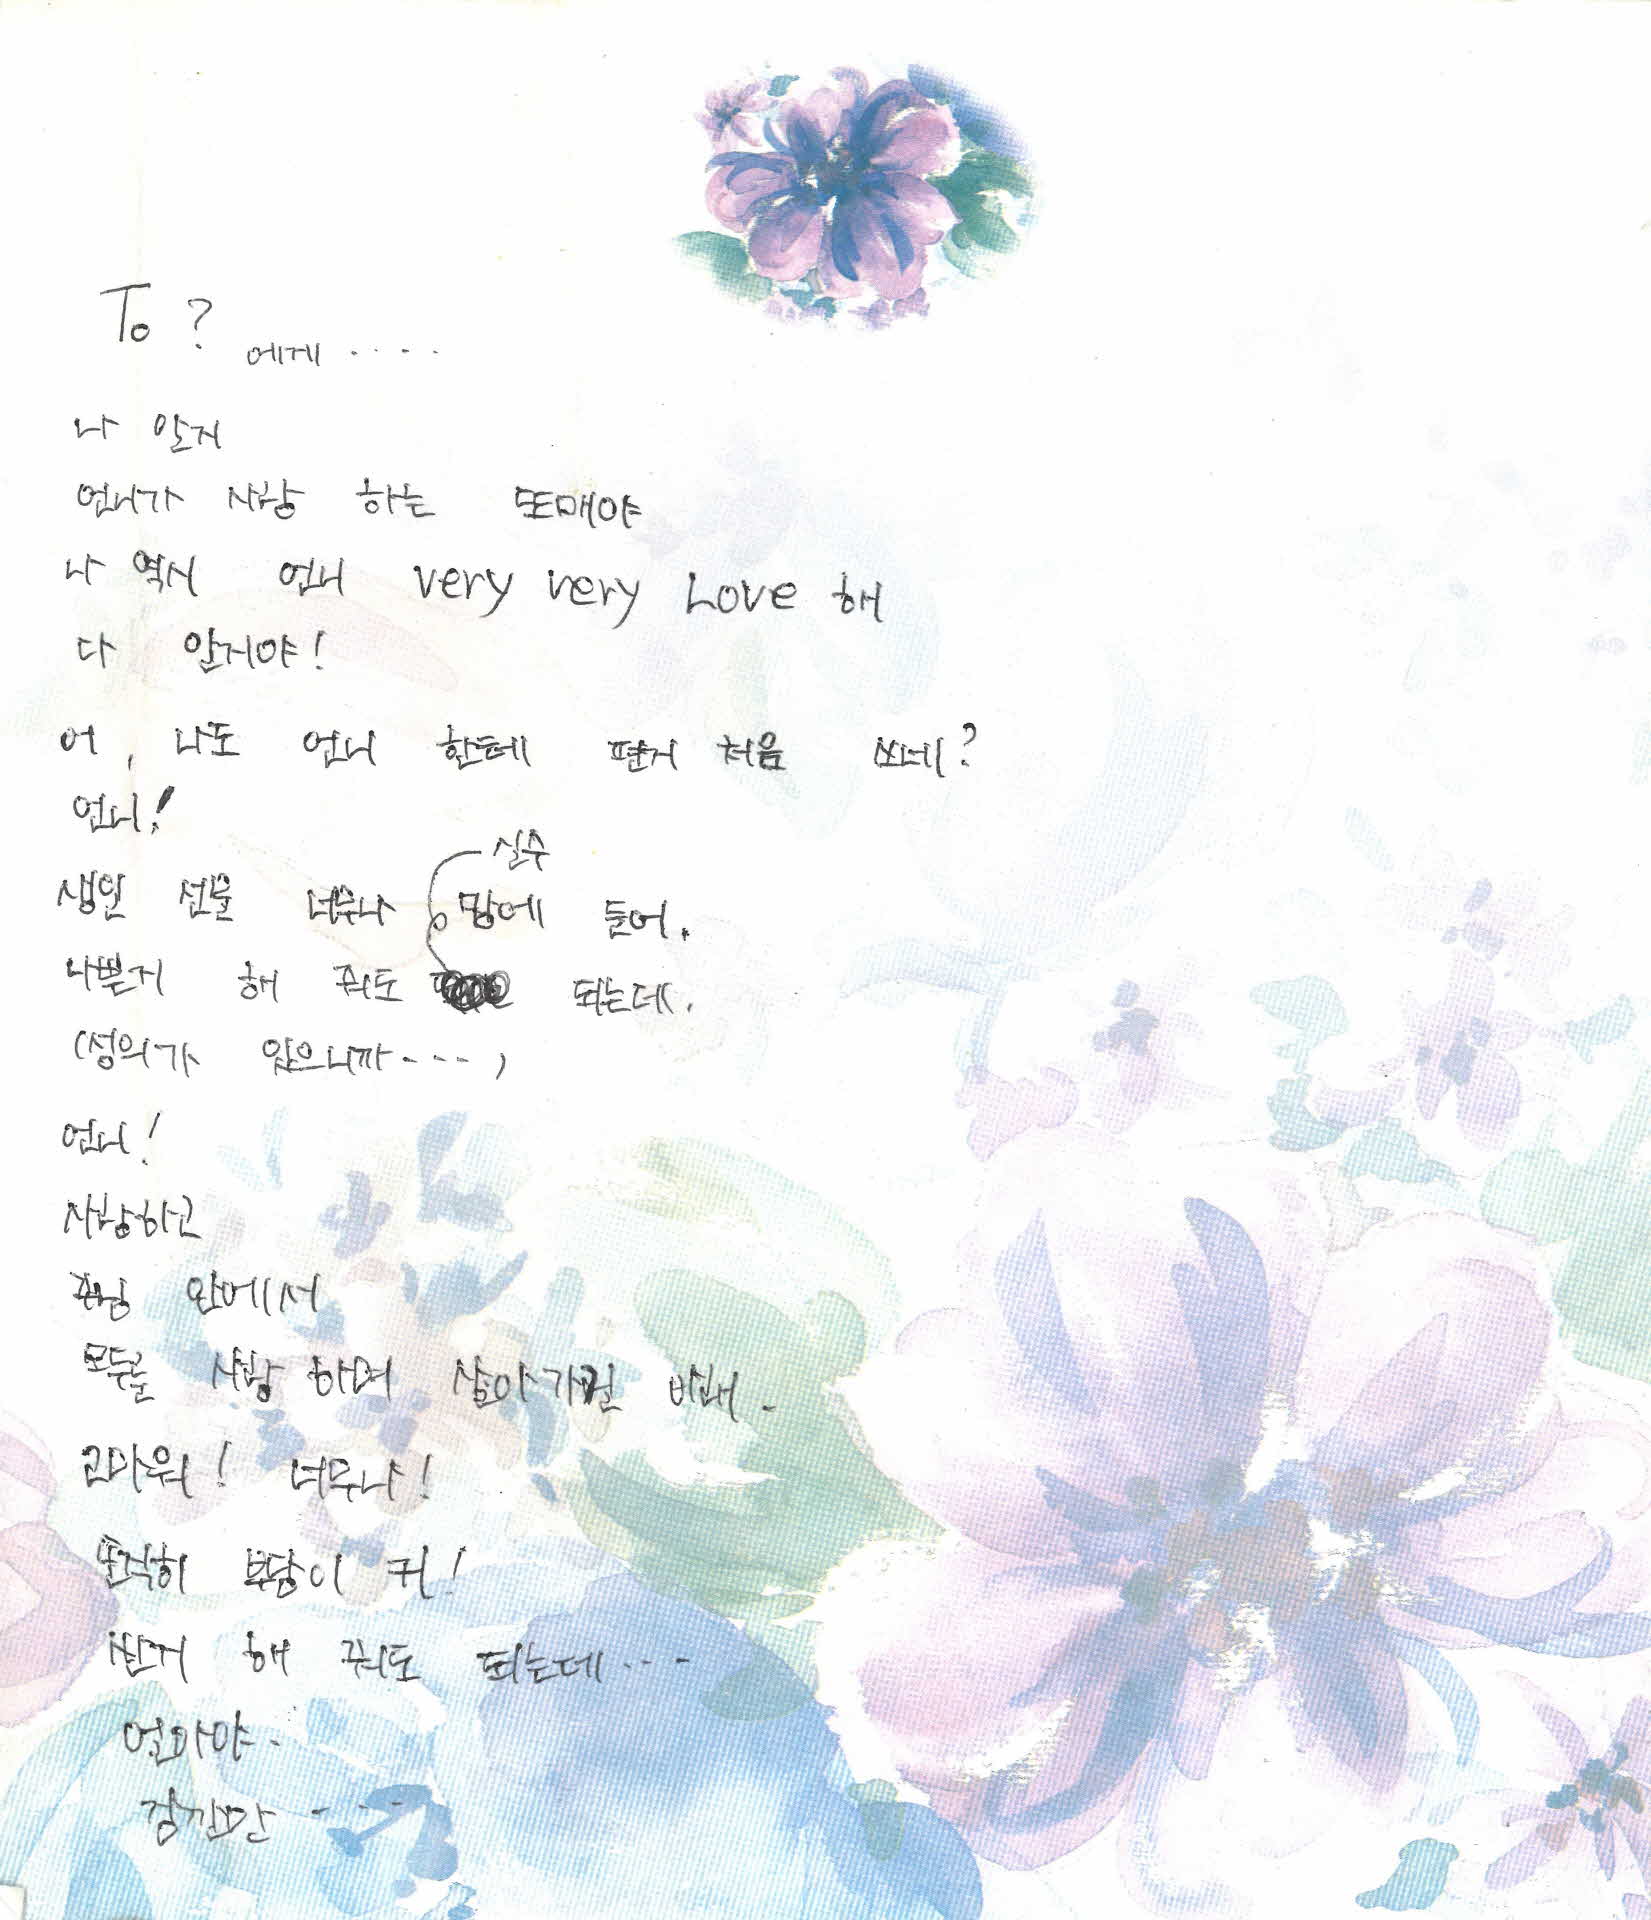 To ? 에게 ....
나 알지
언니가 사랑 하는 또매야
나 역시 언니 very very Love 해
다 알거야!
어, 나도 언니 한테 편지 처음 쓰네?
언니!
실수
생일 선물 너무나 맘에 들어.
나쁜거 해 줘도 되는데.
(성의가 있으니까 ---,
언니!
사랑하고
주님 안에서
모두를 사랑 하며 살아가길 바래.
고마워! 너무나!
솔직히 부담이 커!
싼거 해 줘도 되는데 ---
언마야..
잠깐만 ---